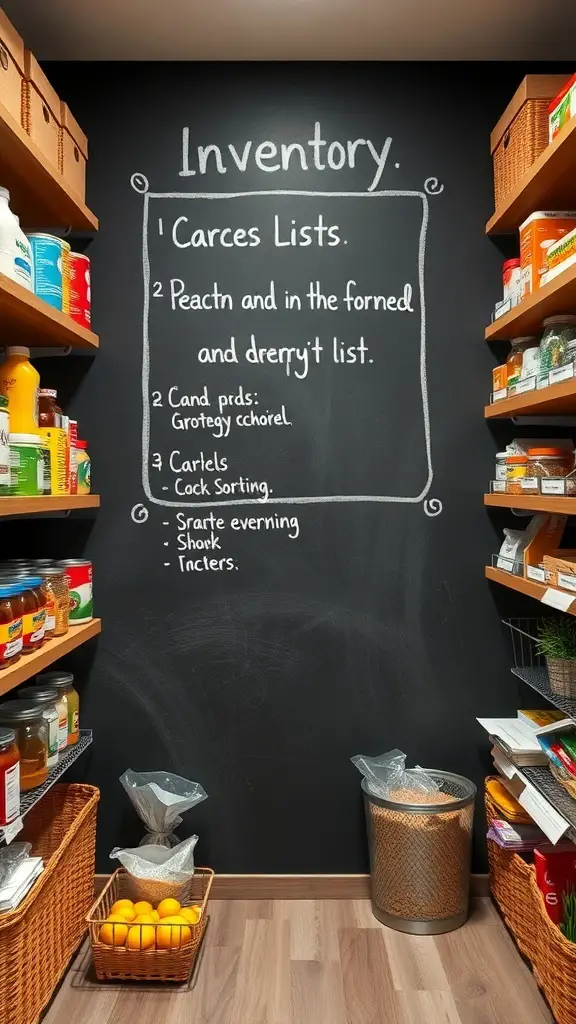 Inventory.
1 Carces Lists.
2 Peactn and in the forned
and drerry't list.
2 Cand prds:
Grotegy cchorel.
3 Carlels
- Cock Sorting.
- Srarte everning
- Shork
- Tncters.